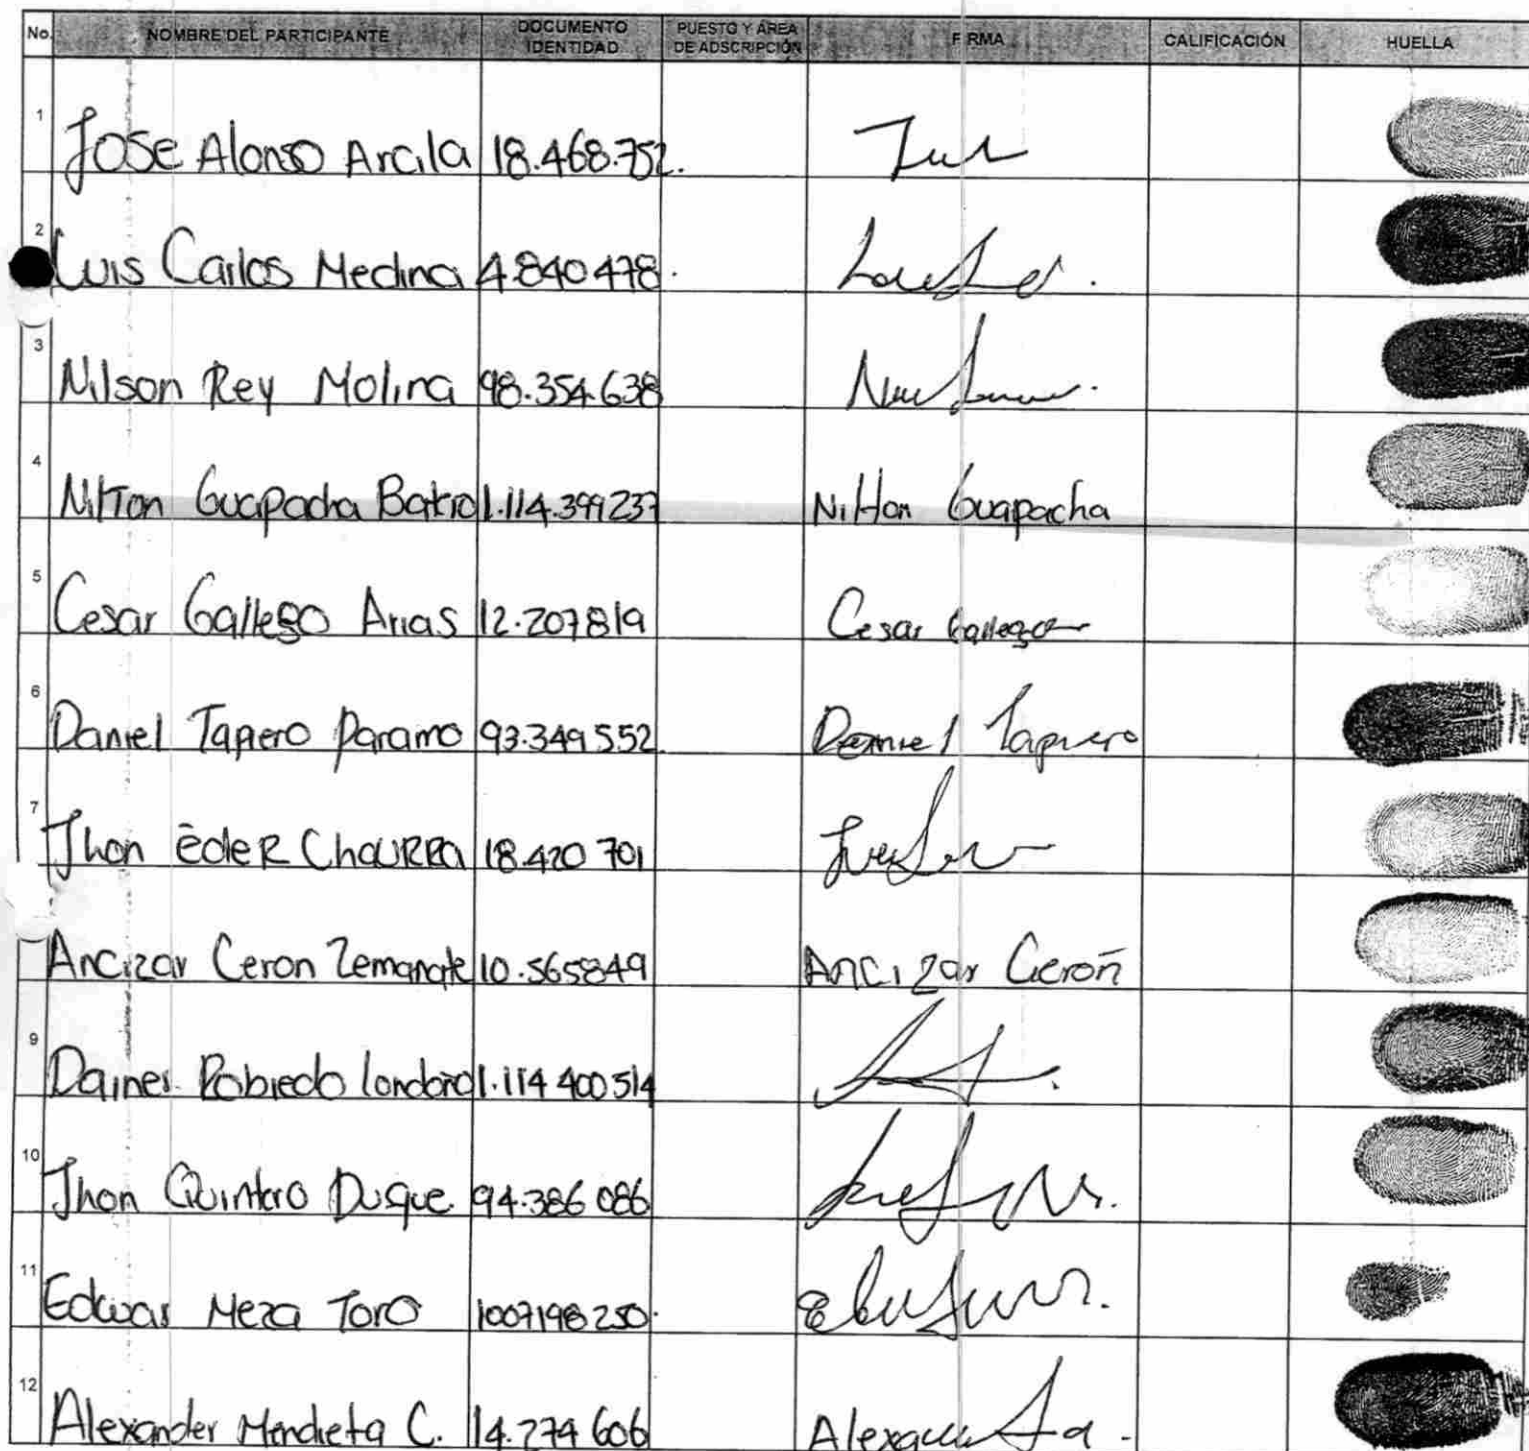 No. NOMBRE DEL PARTICIPANTE DOCUMENTO IDENTIDAD PUESTO Y ÁREA DE ADSCRIPCIÓN FIRMA CALIFICACIÓN HUELLA
1 Jose Alonso Arcila 18.468.752.
2 Luis Carlos Medina 4.840478.
3 Nilson Rey Molina 98.354.638
4 Nilton Guapacha Batio 1.114.399237 Nilton Guapacha
5 Cesar Gallego Arias 12.207819 Cesar Gallego
6 Daniel Tapero Paramo 93.349552 Daniel Tapiero
7 Jhon èder Chaurra 18.420 701
Ancizar Ceron Zemanate 10.565849 Ancizar Ceroñ
9 Dainer Robledo londoño 1.114 400514
10 Jhon Quintero Duque. 94.386 086
11 Edwar Meza Toro 1007198250.
12 Alexander Mendieta C. 14.274 606